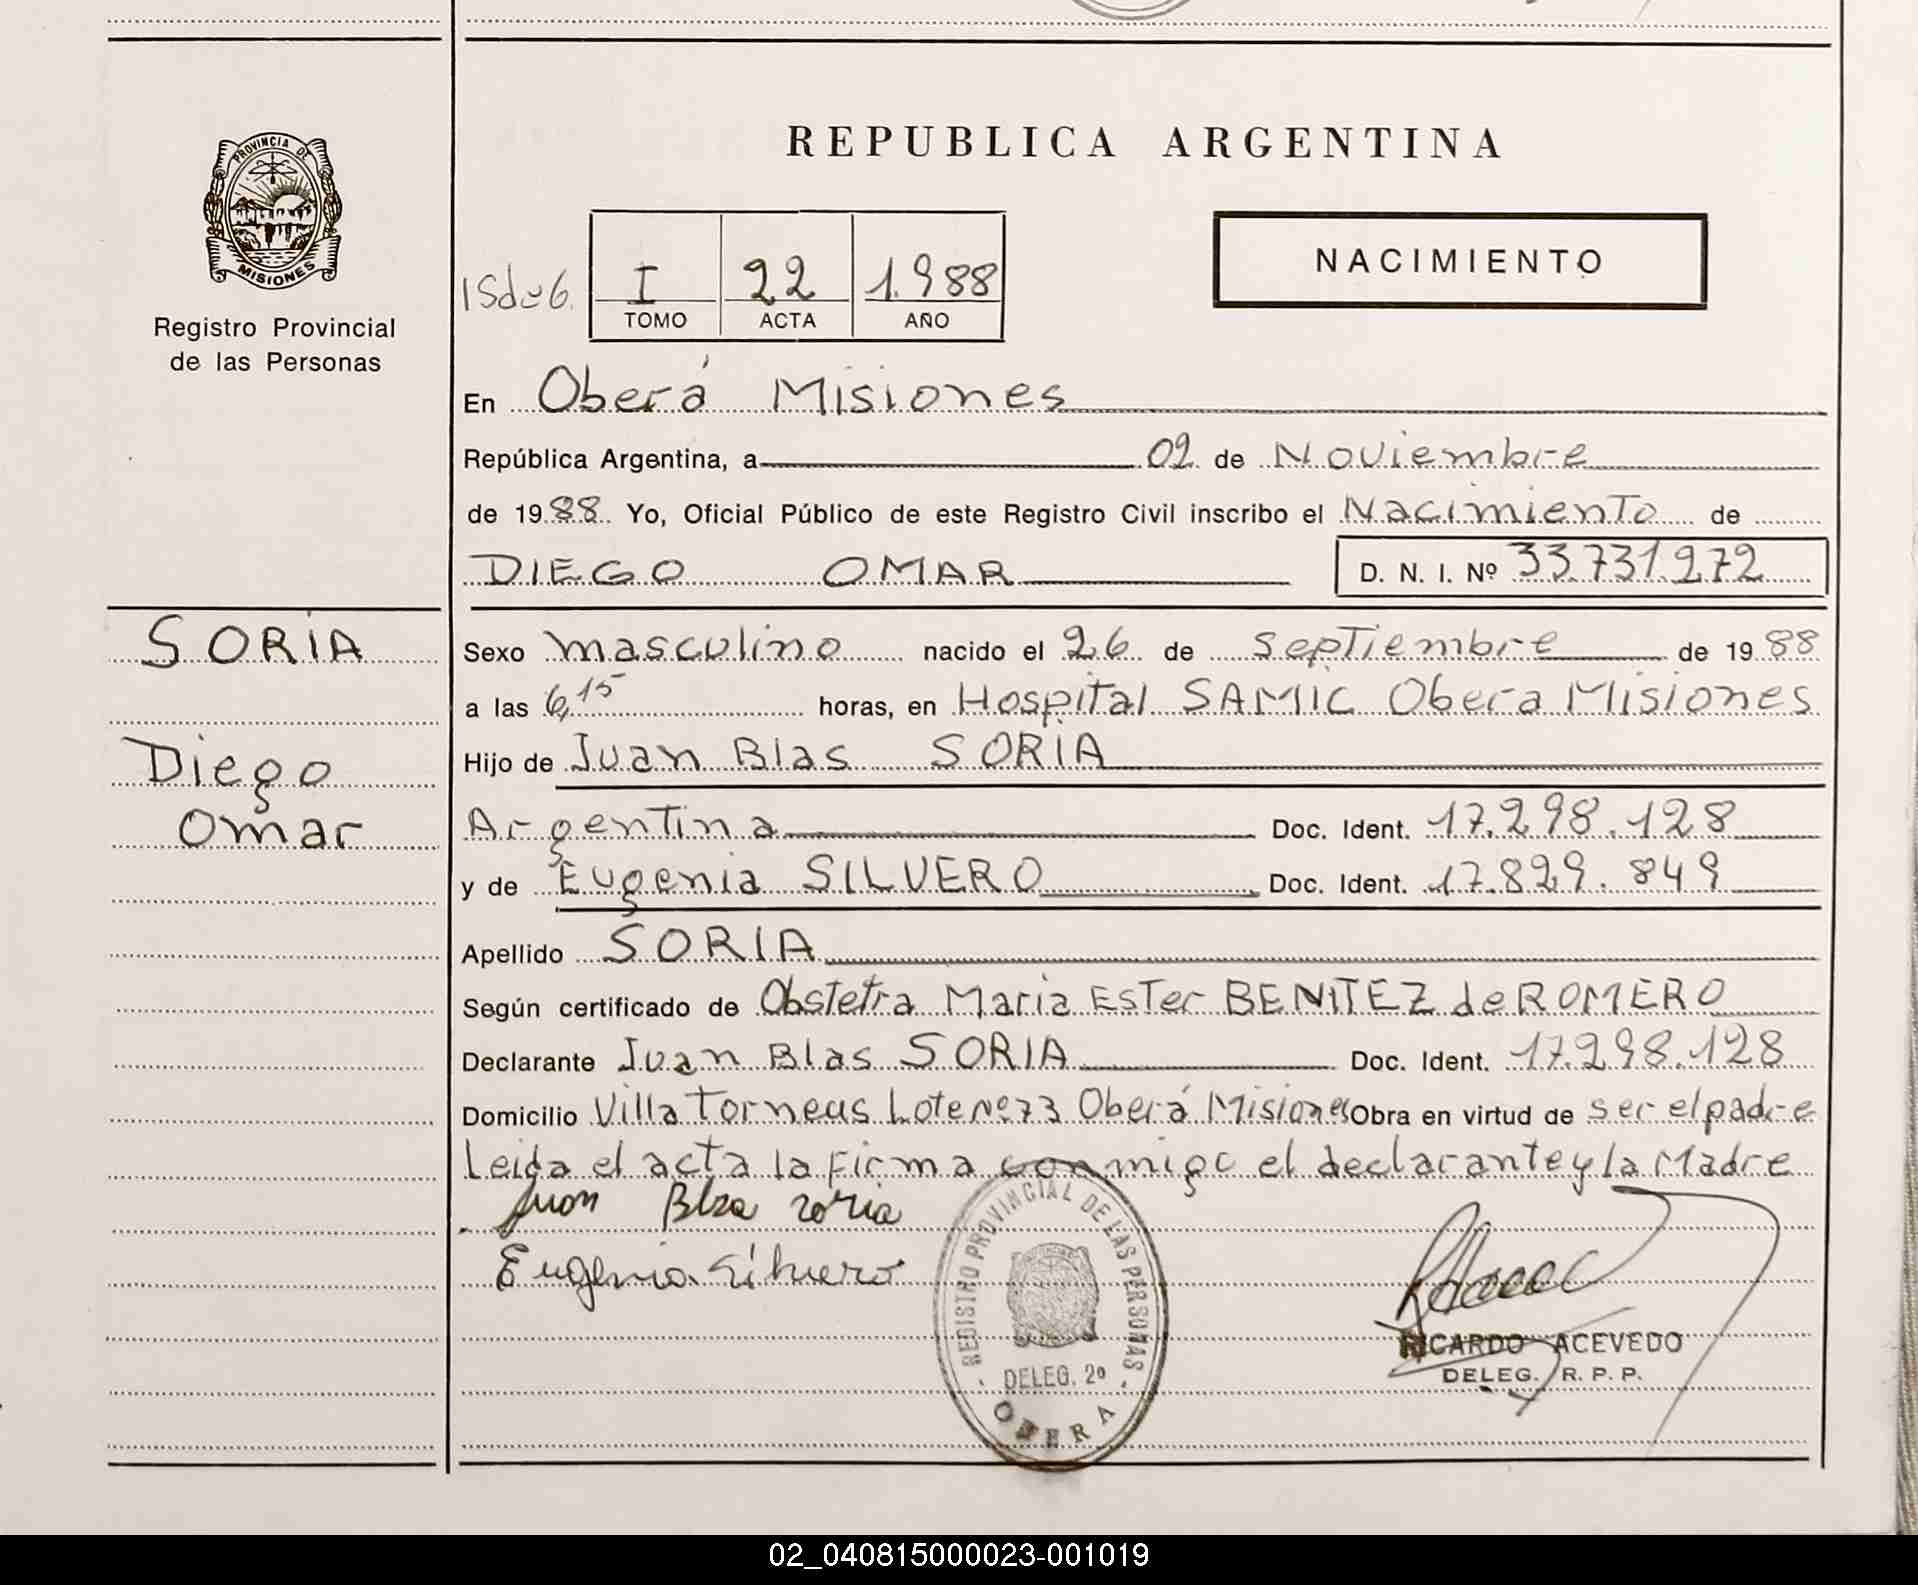 REPUBLICA ARGENTINA
PROVINCIA DE
MISIONES
Registro Provincial
de las Personas
I 22 1.988
TOMO ACTA AÑO
NACIMIENTO
En Oberá Misiones
República Argentina, a 02 de Noviembre
de 1988 Yo, Oficial Público de este Registro Civil inscribo el Nacimiento de
DIEGO OMAR D. N. I. Nº 33.731.272
SORIA
Diego
Omar
Sexo masculino nacido el 26 de septiembre de 1988
a las 6,15 horas, en Hospital SAMIC Obera Misiones
Hijo de Juan Blas SORIA
Argentina Doc. Ident. 17.298.128
y de Eugenia SILVERO Doc. Ident. 17.829.849
Apellido SORIA
Según certificado de Obstetra Maria Ester BENITEZ de ROMERO
Declarante Juan Blas SORIA Doc. Ident. 17.298.128
Domicilio Villa Torneus Lote Nº 73 Oberá Misiones Obra en virtud de ser el padre
Leida el acta la firma conmigo el declarante y la Madre
Juan Blza zoria
Eugenia Silvero
REGISTRO PROVINCIAL DE LAS PERSONAS
DELEG. 2º
OBERA
RICARDO ACEVEDO
DELEG. R. P. P.
02_040815000023-001019